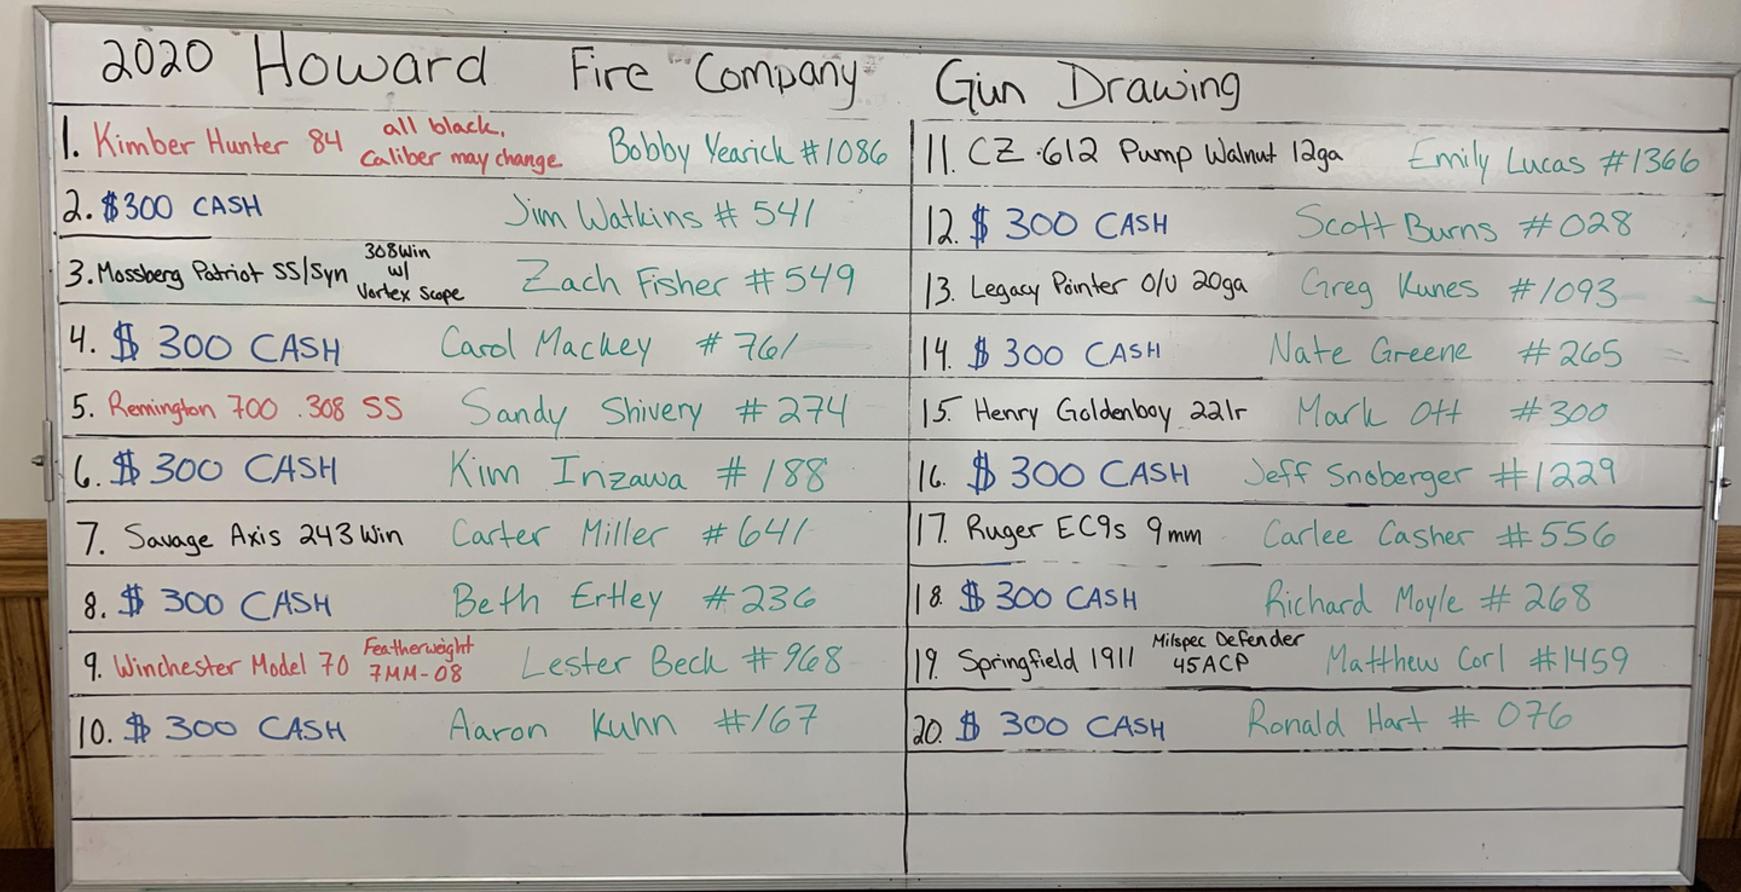 2020 Howard Fire Company Gun Drawing
1. Kimber Hunter 84 all black, Caliber may change Bobby Yearick #1086
2. $300 CASH Jim Watkins # 541
3. Mossberg Patriot SS/Syn 308Win w/ Vortex Scope Zach Fisher #549
4. $ 300 CASH Carol Mackey # 761
5. Remington 700 .308 SS Sandy Shivery # 274
6. $ 300 CASH Kim Inzawa # 188
7. Savage Axis 243 Win Carter Miller # 641
8. $ 300 CASH Beth Ertley # 236
9. Winchester Model 70 Featherweight 7MM-08 Lester Beck #968
10. $ 300 CASH Aaron Kuhn #167
11. CZ .612 Pump Walnut 12ga Emily Lucas #1366
12. $ 300 CASH Scott Burns #028
13. Legacy Pointer O/U 20ga Greg Kunes #1093
14. $ 300 CASH Nate Greene #265
15. Henry Goldenboy 22lr Mark Ott #300
16. $ 300 CASH Jeff Snoberger #1229
17. Ruger EC9s 9mm Carlee Casher #556
18. $ 300 CASH Richard Moyle # 268
19. Springfield 1911 Milspec Defender 45ACP Matthew Corl #1459
20. $ 300 CASH Ronald Hart # 076